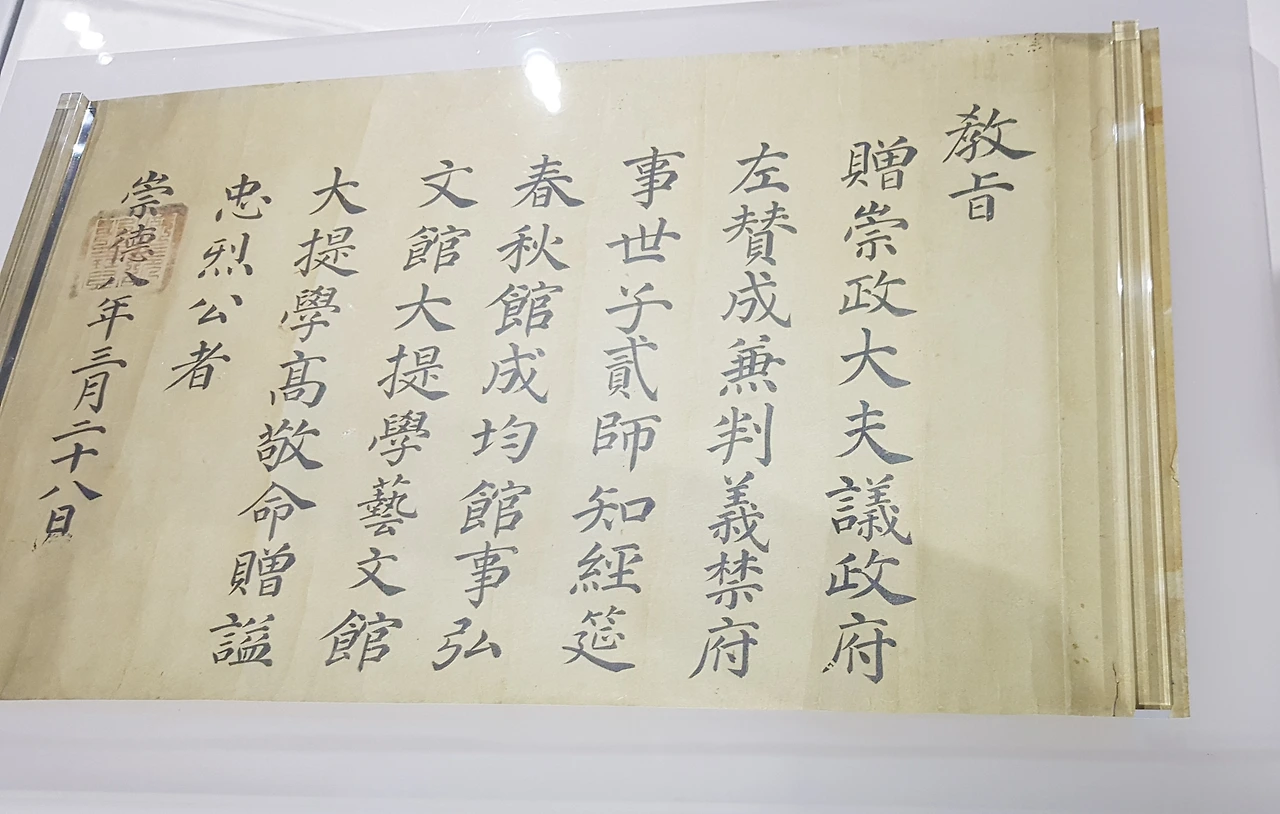 敎旨
贈崇政大夫議政府
左賛成兼判義禁府
事世子貳師知經筵
春秋館成均館事弘
文館大提學藝文館
大提學高敬命贈諡
忠烈公者
崇德八年三月二十八日